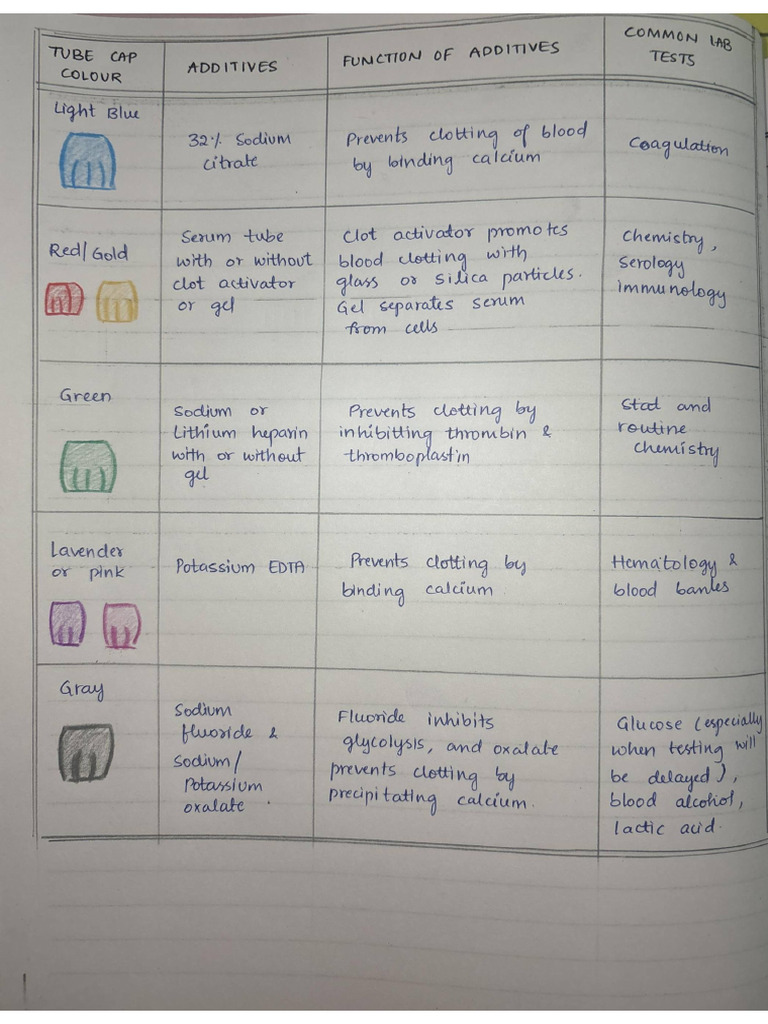 TUBE CAP
COLOUR
ADDITIVES
FUNCTION OF ADDITIVES
COMMON LAB
TESTS
Light Blue
32% Sodium
citrate
Prevents clotting of blood
by binding calcium
Coagulation
Red/Gold
Serum tube
with or without
clot activator
or gel
Clot activator promotes
blood clotting with
glass or silica particles.
Gel separates serum
from cells
Chemistry,
serology
immunology
Green
Sodium or
Lithium heparin
with or without
gel
Prevents clotting by
inhibitting thrombin &
thromboplastin
Stat and
routine
chemistry
Lavender
or pink
Potassium EDTA
Prevents clotting by
binding calcium
Hematology &
blood banks
Gray
Sodium
fluoride &
Sodium/
Potassium
oxalate.
Fluoride inhibits
glycolysis, and oxalate
prevents clotting by
precipitating calcium.
Glucose (especially
when testing will
be delayed),
blood alcohol,
lactic acid.